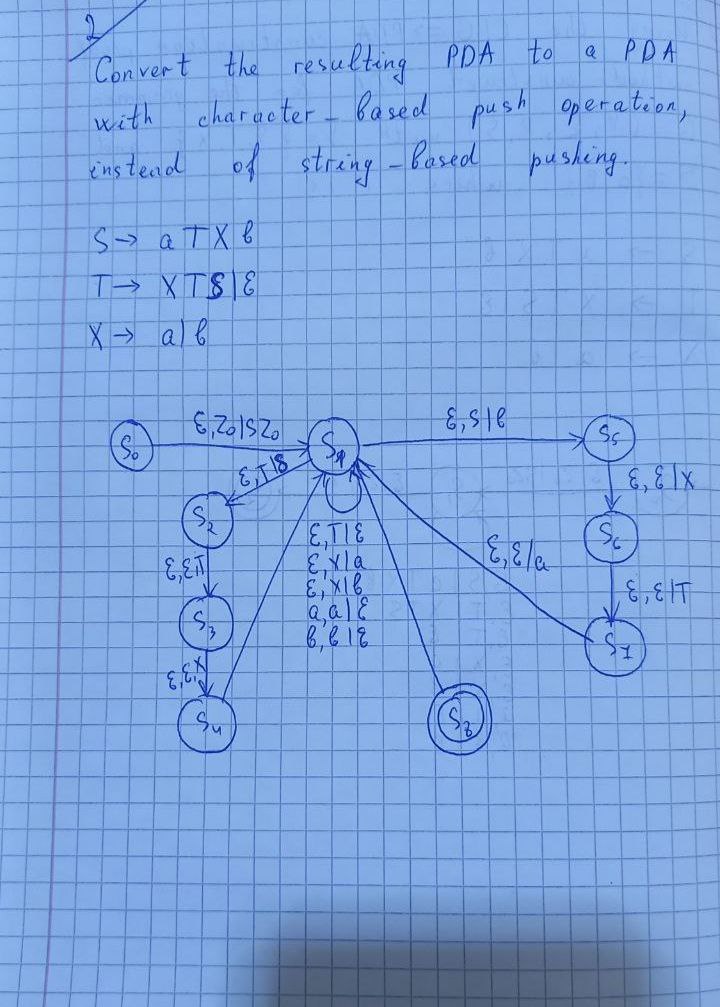 2
Convert the resulting PDA to a PDA
with character-based push operation,
instead of string-based pushing.
S→ aTXb
T→ XTS|ε
X→ a|b
S₀
ε,Z₀|SZ₀
S₁
ε,S|b
S₅
ε,T|S
ε,ε|X
S₂
ε,ε|T
S₃
ε,ε|X
S₄
ε,T|ε
ε,X|a
ε,X|b
a,a|ε
b,b|ε
ε,ε|a
S₆
ε,ε|T
S₇